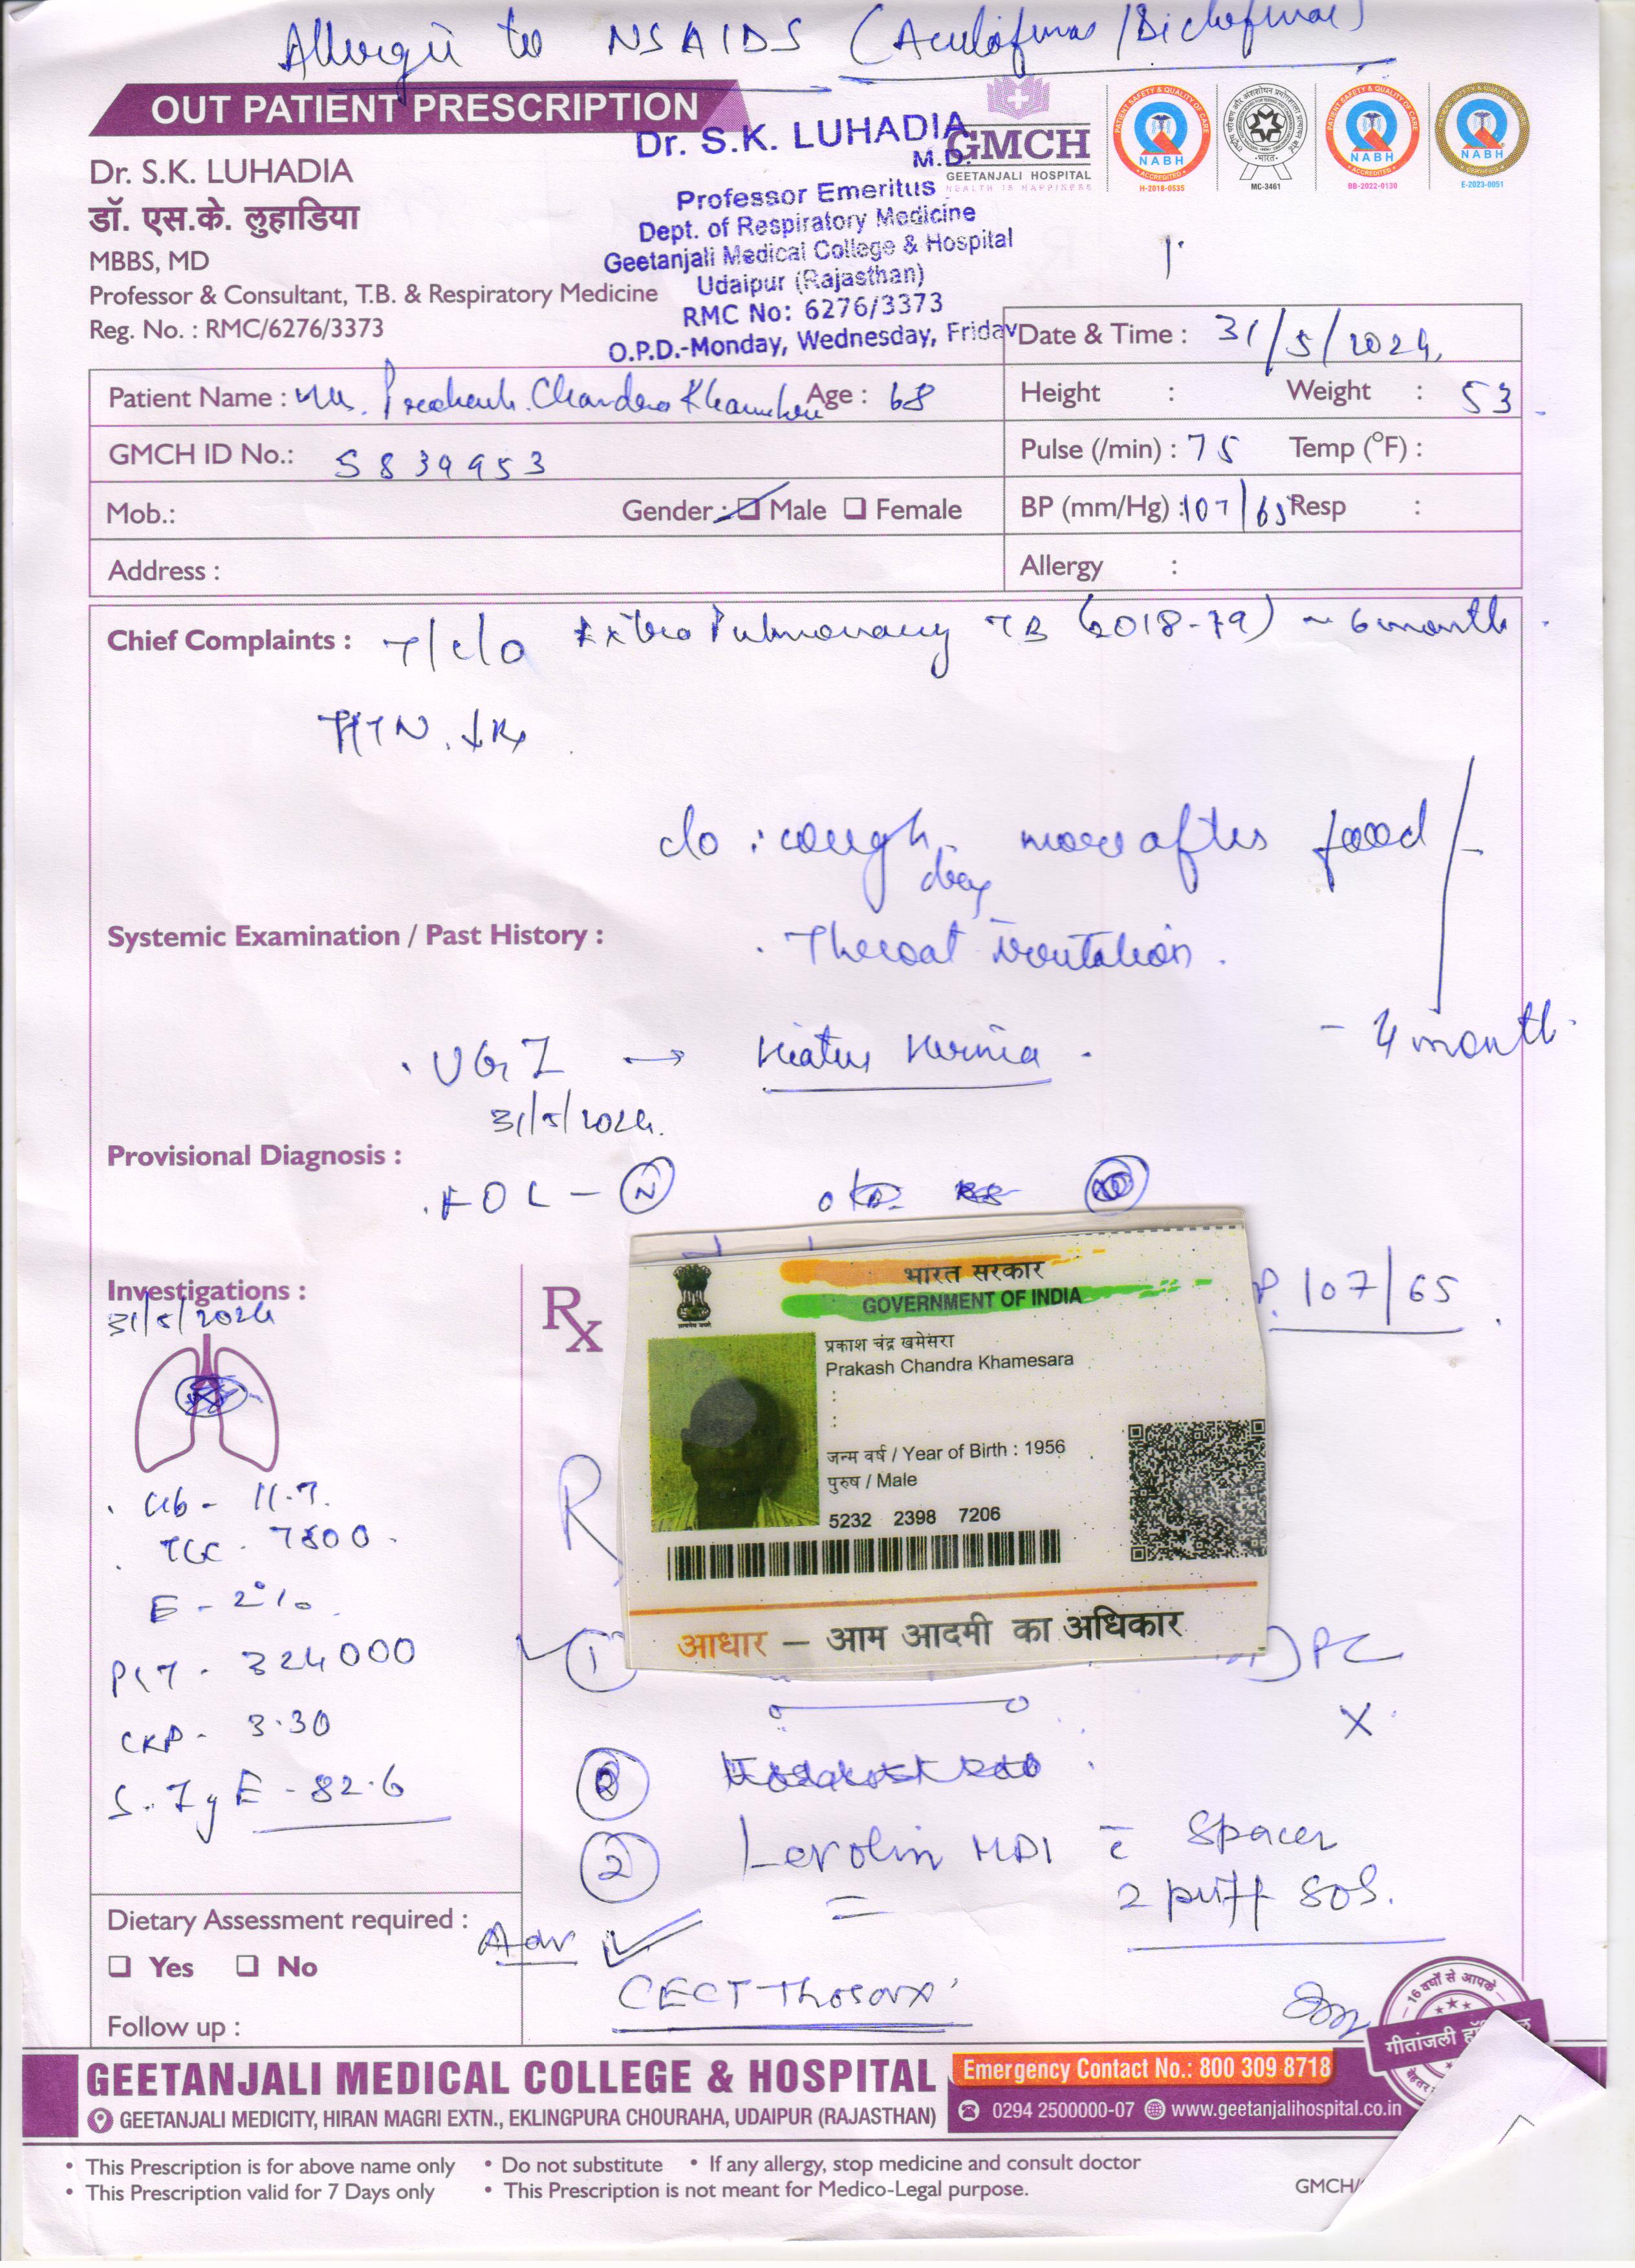 Allergic to NSAIDS (Aculofenac/Diclofenac)
OUT PATIENT PRESCRIPTION
Dr. S.K. LUHADIA
डॉ. एस.के. लुहाडिया
MBBS, MD
Professor & Consultant, T.B. & Respiratory Medicine
Reg. No. : RMC/6276/3373
Dr. S.K. LUHADIA
M.D.
Professor Emeritus
Dept. of Respiratory Medicine
Geetanjali Medical College & Hospital
Udaipur (Rajasthan)
RMC No: 6276/3373
O.P.D.-Monday, Wednesday, Friday
GMCH
GEETANJALI HOSPITAL
HEALTH IS HAPPINESS
NABH
H-2018-0535
MC-3461
NABH
BB-2022-0130
NABH
E-2023-0051
Date & Time : 31/5/2024
Patient Name : Mr. Prakash Chandra Age : 68
Height : Weight : 53
GMCH ID No.: 5839953
Pulse (/min) : 75 Temp (°F) :
Mob.: Gender : Male Female
BP (mm/Hg) : 107/65 Resp :
Address :
Allergy :
Chief Complaints : T/c/o Extra Pulmonary TB (2018-19) ~ 6 month
HTN
c/o : cough more after food
dry
Systemic Examination / Past History :
Throat irritation.
- 4 month
UGI → Hiatus Hernia
31/5/2024
Provisional Diagnosis :
FOL - N
Investigations :
31/5/2024
Rx
107/65
भारत सरकार
GOVERNMENT OF INDIA
प्रकाश चंद्र खमेसरा
Prakash Chandra Khamesara
जन्म वर्ष / Year of Birth : 1956
पुरुष / Male
5232 2398 7206
आधार – आम आदमी का अधिकार
Hb - 11.7
TLC - 7800
E - 2%
PLT - 324000
CRP - 3.30
S. IgE - 82.6
①
②
② Levolin MDI c̄ Spacer
2 puff SOS.
Adv
CECT-Thorax
Dietary Assessment required :
Yes No
Follow up :
16 वर्षों से आपके
गीतांजली
GEETANJALI MEDICAL COLLEGE & HOSPITAL
Emergency Contact No.: 800 309 8718
GEETANJALI MEDICITY, HIRAN MAGRI EXTN., EKLINGPURA CHOURAHA, UDAIPUR (RAJASTHAN)
0294 2500000-07 www.geetanjalihospital.co.in
• This Prescription is for above name only • Do not substitute • If any allergy, stop medicine and consult doctor
• This Prescription valid for 7 Days only • This Prescription is not meant for Medico-Legal purpose.
GMCH/